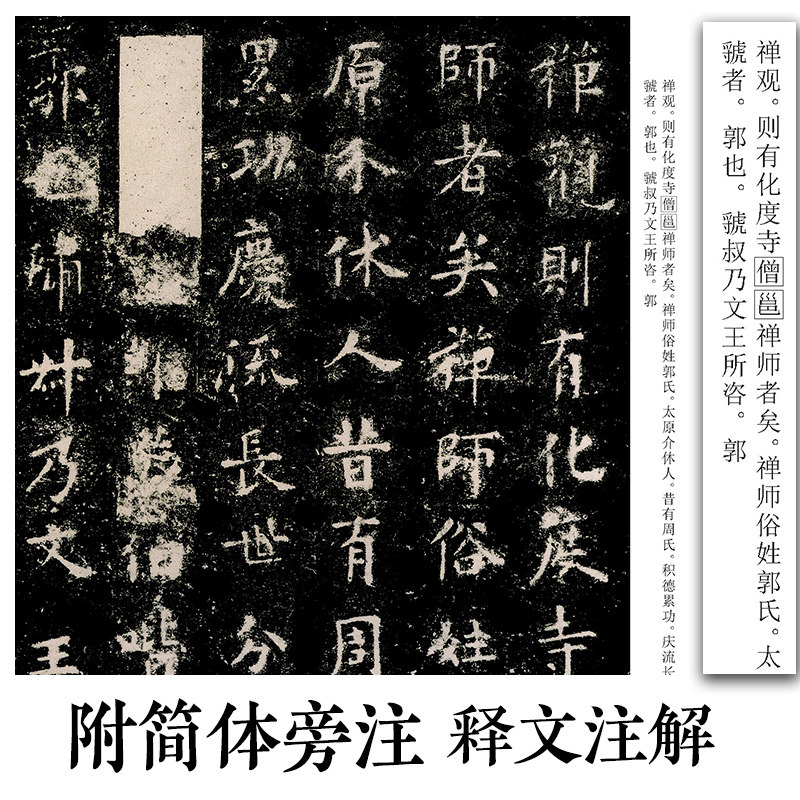 禅观。则有化度寺僧邕禅师者矣。禅师俗姓郭氏。太
虢者。郭也。虢叔乃文王所咨。郭
禅观。则有化度寺僧邕禅师者矣。禅师俗姓郭氏。太原介休人。昔有周氏。积德累功。庆流长
虢者。郭也。虢叔乃文王所咨。郭
禪觀則有化度寺
師者矣禪師俗姓
原介休人昔有周
累功慶流長世分
蔡伯喈
郭也虢叔乃文王
附简体旁注 释文注解